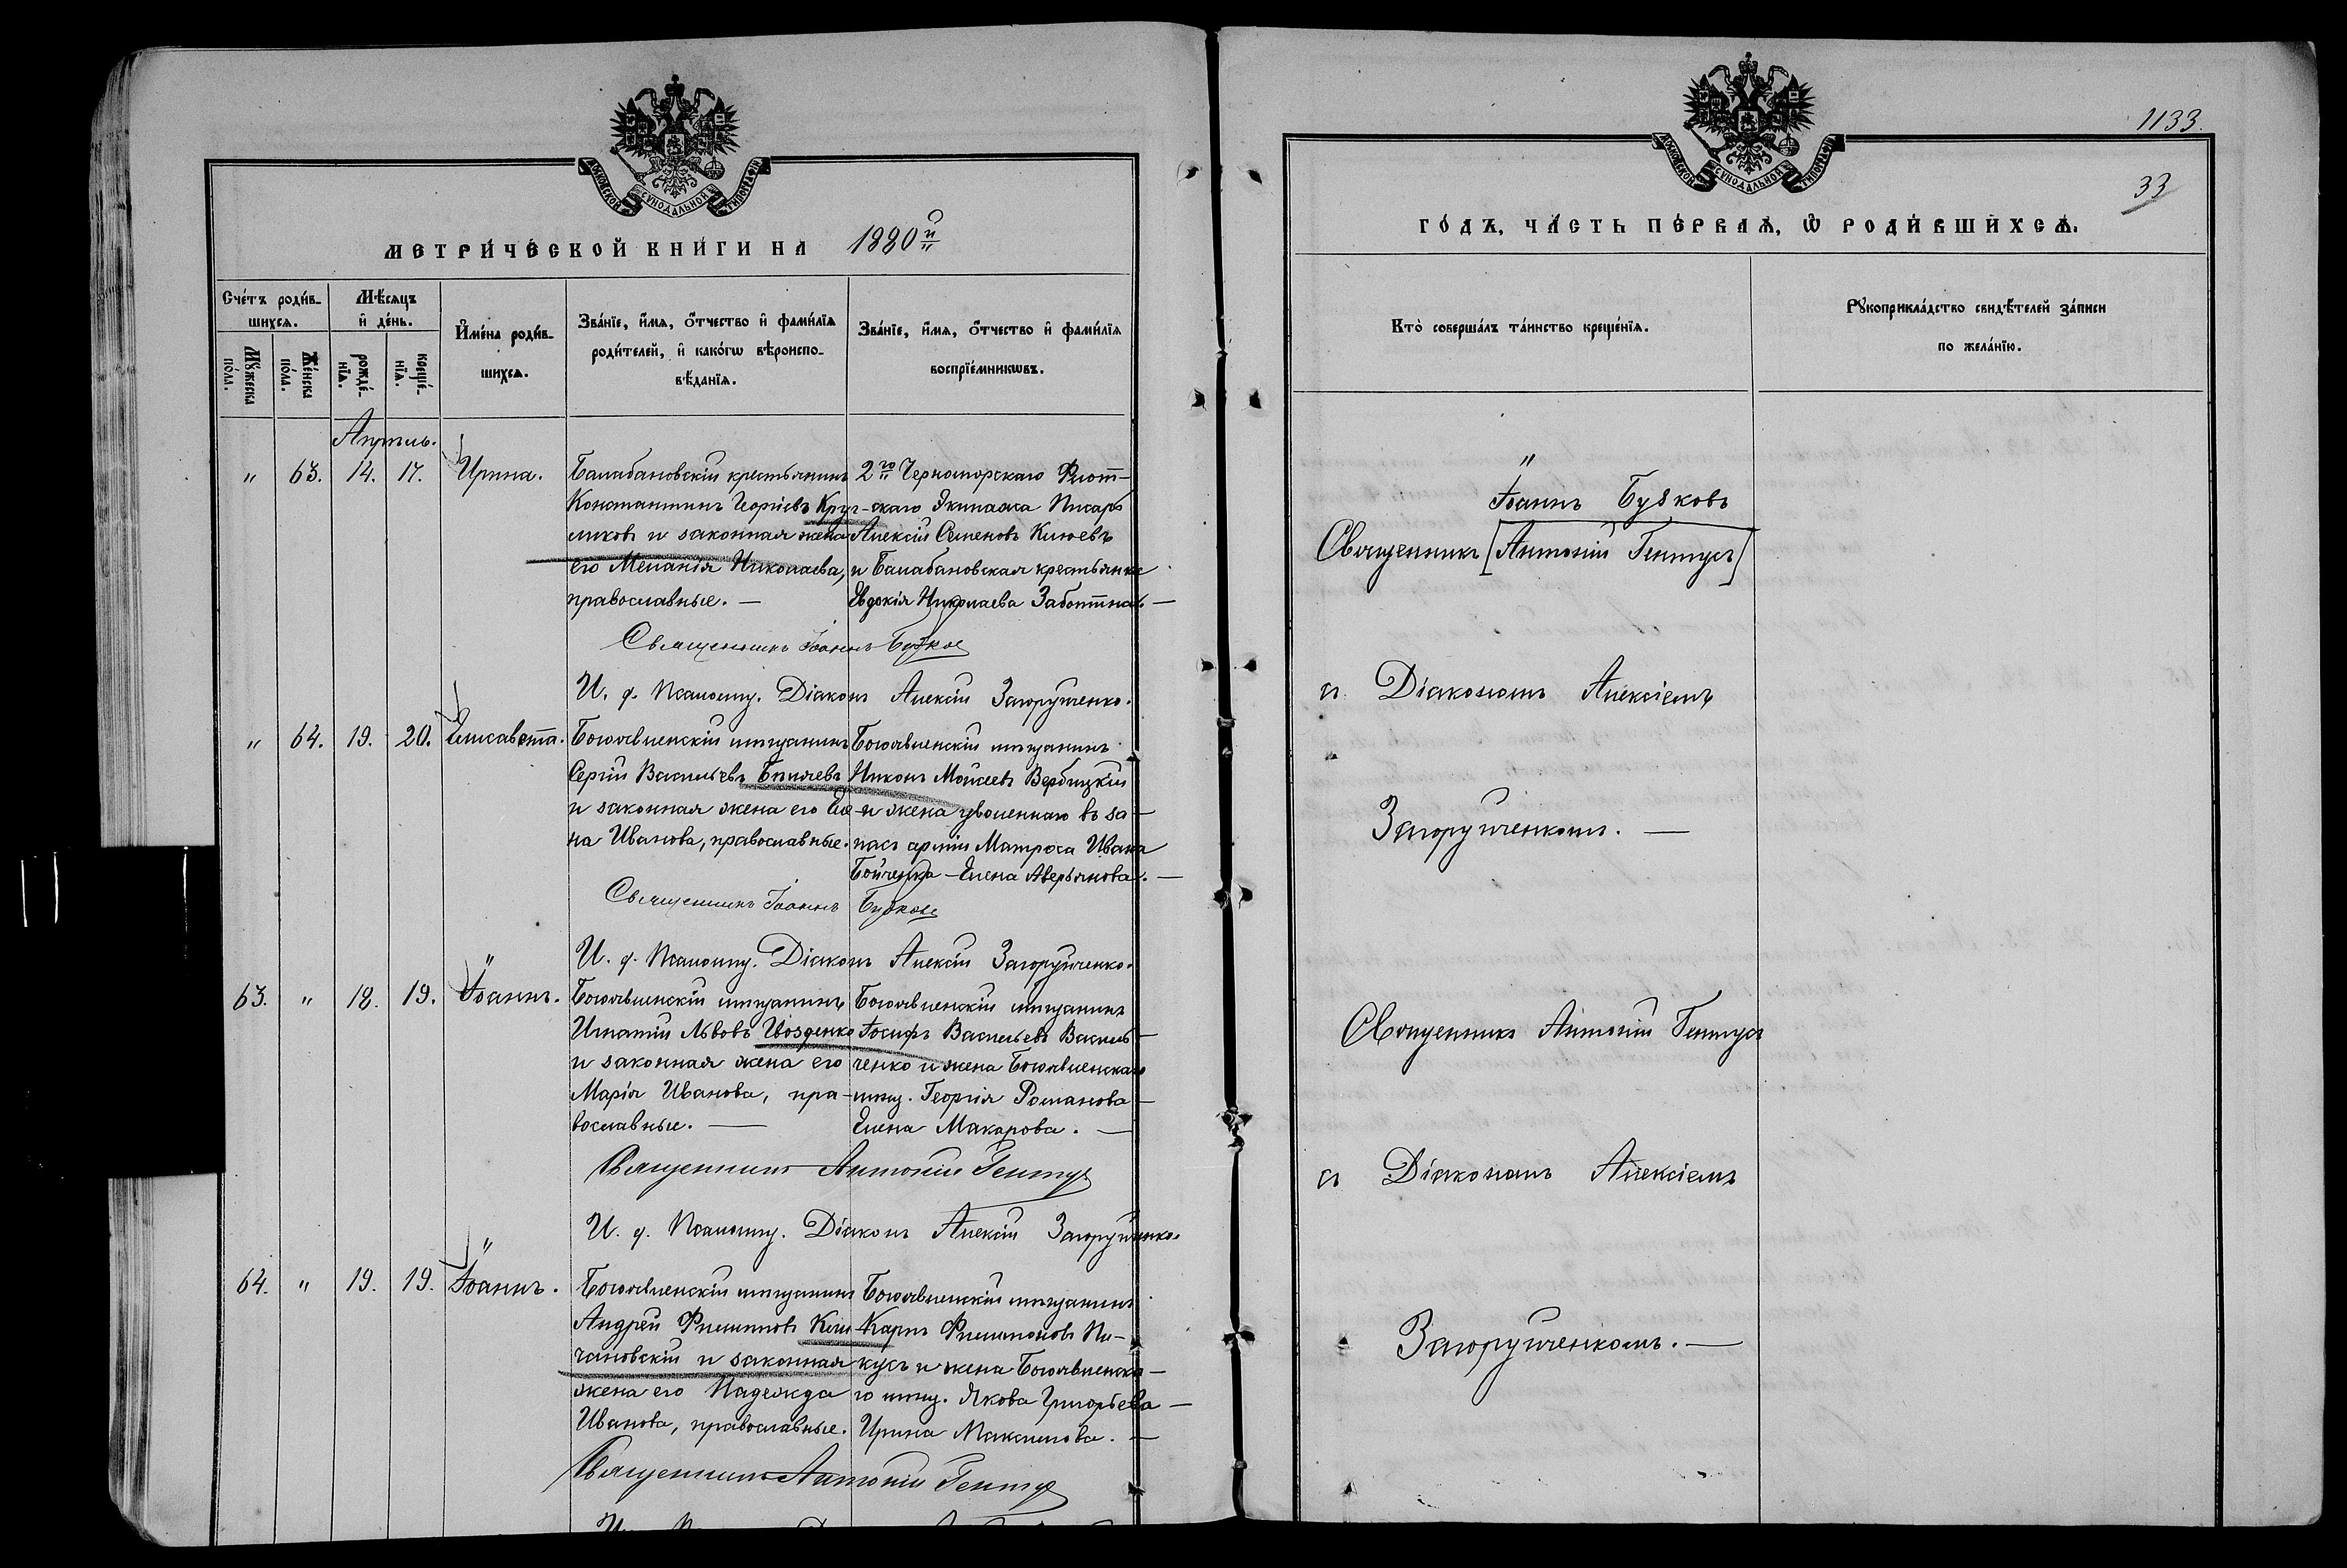 МОСКОВСКОЙ СѴНОДАЛЬНОЙ ТИПОГРАФІИ
МЕТРИ́ЧЕСКОЙ КНИ́ГИ НА 1880й
Сче́тъ роди́в-
шихсѧ.
Мꙋ́жеска
по́ла.
Же́нска
по́ла.
Мѣ́сѧцъ
и҆ де́нь.
рожде́-
нїѧ.
креще́-
нїѧ.
И҆мена̀ роди́в-
шихсѧ.
Зва́нїе, и҆́мѧ, ѻ҆́тчество и҆ фами́лїѧ
роди́телей, и҆ како́гѡ вѣроиспо-
вѣ́данїѧ.
Зва́нїе, и҆́мѧ, ѻ҆́тчество и҆ фами́лїѧ
воспрїе́мникѡвъ.
Апрѣль.
" 63. 14. 17. Ирина.
Балабановскій крестьянинъ
Константинъ Георгіевъ Круг-
ликовъ и законная жена
его Меланія Николаева,
православные. —
2го Черноморскаго Флот-
скаго Экипажа Писарь
Алексій Семеновъ Клюевъ
и Балабановская крестьянка
Евдокія Николаева Заботина. —
Священникъ Іоаннъ Будков
И. д. Псаломщ. Діаконъ Алексій Загоруйченко.
" 64. 19. 20. Елисавета.
Богоявленскій мѣщанинъ
Сергій Васильевъ Беляевъ
и законная жена его Еле-
на Иванова, православные.
Богоявленскій мѣщанинъ
Никонъ Моисеевъ Вербицкій
и жена уволеннаго въ за-
пасъ арміи Матроса Ивана
Бойченка - Елена Аверьянова. —
Священникъ Іоаннъ Будков
И. д. Псаломщ. Діаконъ Алексій Загоруйченко.
63. " 18. 19. Іоаннъ.
Богоявленскій мѣщанинъ
Игнатій Львовъ Гвозденко
и законная жена его
Марія Иванова, пра-
вославные. —
Богоявленскій мѣщанинъ
Іосифъ Васильевъ Василь-
ченко и жена Богоявленскаго
мѣщ. Георгія Романова —
Елена Макарова. —
Священникъ Антоній Гентуз
И. д. Псаломщ. Діаконъ Алексій Загоруйченко.
64. " 19. 19. Іоаннъ.
Богоявленскій мѣщанинъ
Андрей Филиповъ Кли-
чановскій и законная
жена его Надежда
Иванова, православные.
Богоявленскій мѣщанинъ
Карпъ Филимоновъ Пи-
кусъ и жена Богоявленска-
го мѣщ. Якова Григорьева —
Ирина Максимова. —
Священникъ Антоній Гентуз
1133.
33
МОСКОВСКОЙ СѴНОДАЛЬНОЙ ТИПОГРАФІИ
ГО́ДЪ, ЧА́СТЬ ПЕ́РВАѦ, Ѡ҆ РОДИ́ВШИХСѦ.
Кто̀ соверша́лъ та́инство креще́нїѧ.
Рꙋкоприкла́дство свидѣ́телей за́писи
по жела́нїю.
Іоаннъ Будковъ
Священникъ [Антоній Гентусъ]
съ Діакономъ Алексіемъ
Загоруйченкомъ. —
Священникъ Антоній Гентусъ
съ Діакономъ Алексіемъ
Загоруйченкомъ. —